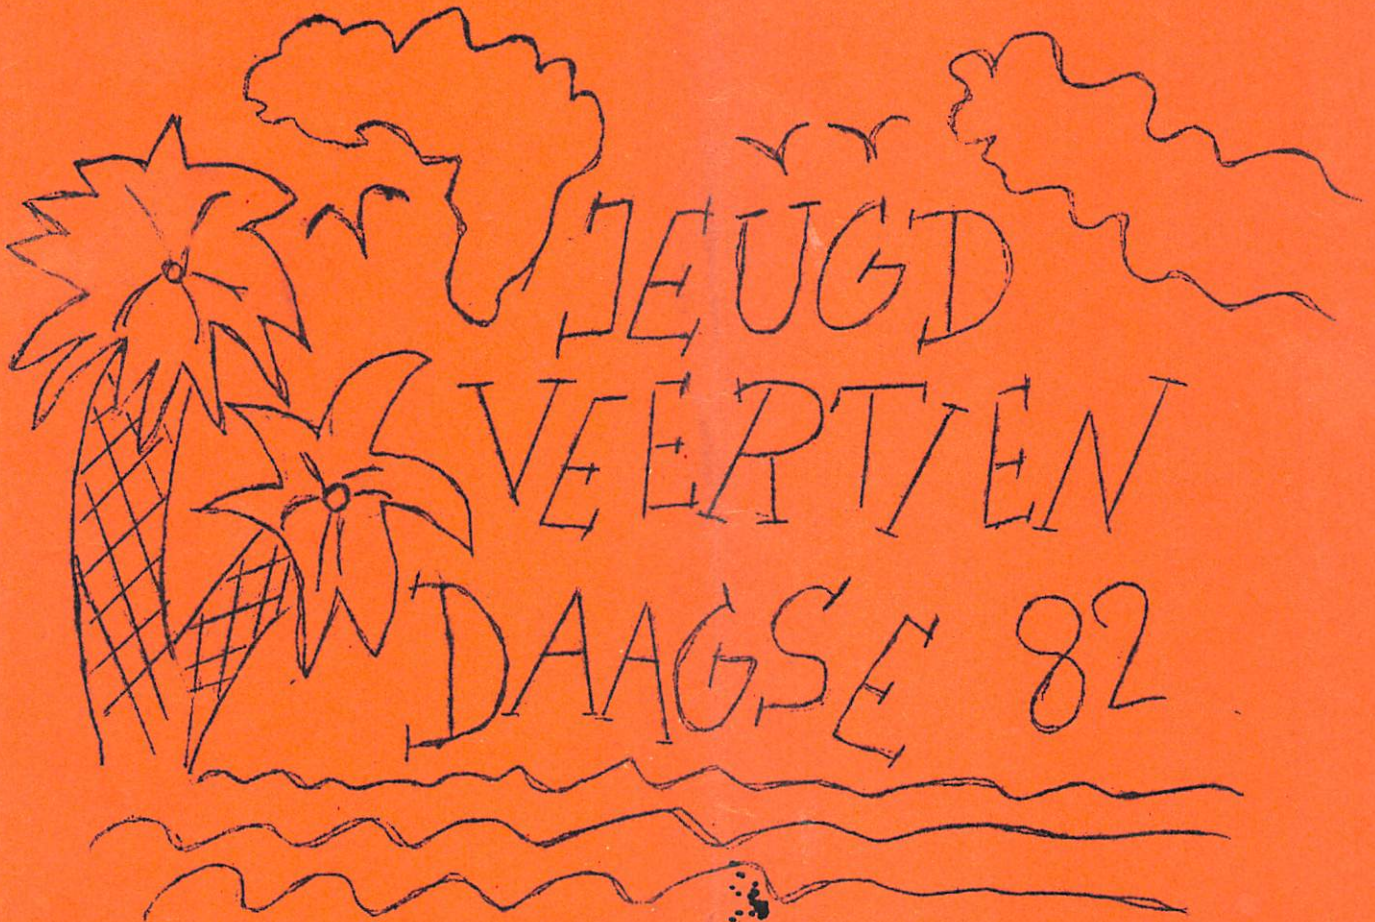 JEUGD
VEERTIEN
DAAGSE 82